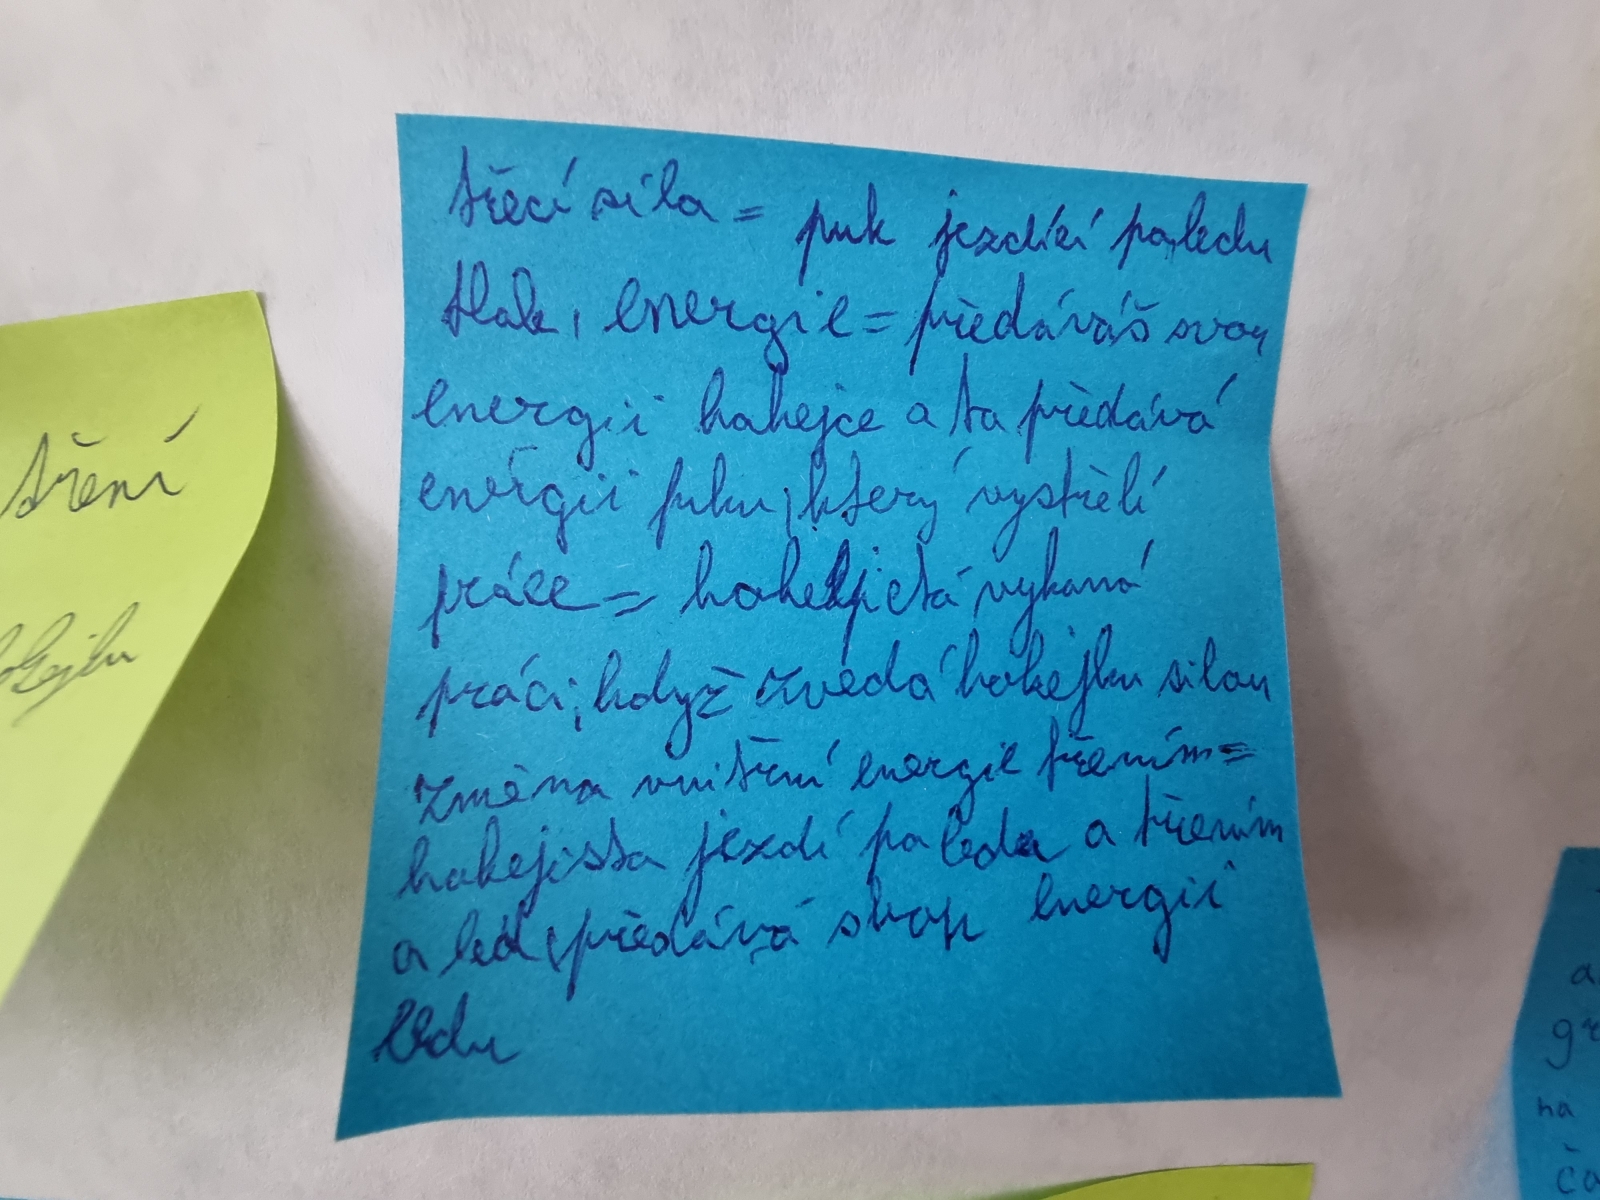 třecí síla = puk jezdící po ledu
tlak, energie = předáváš svou
energii hokejce a ta předává
energii puku, který vystřelí
práce = hokejista vykoná
práci, když zvedá hokejku silou
změna vnitřní energie třením =
hokejista jezdí po ledu a třením
o led, předává svoji energii
ledu
tření